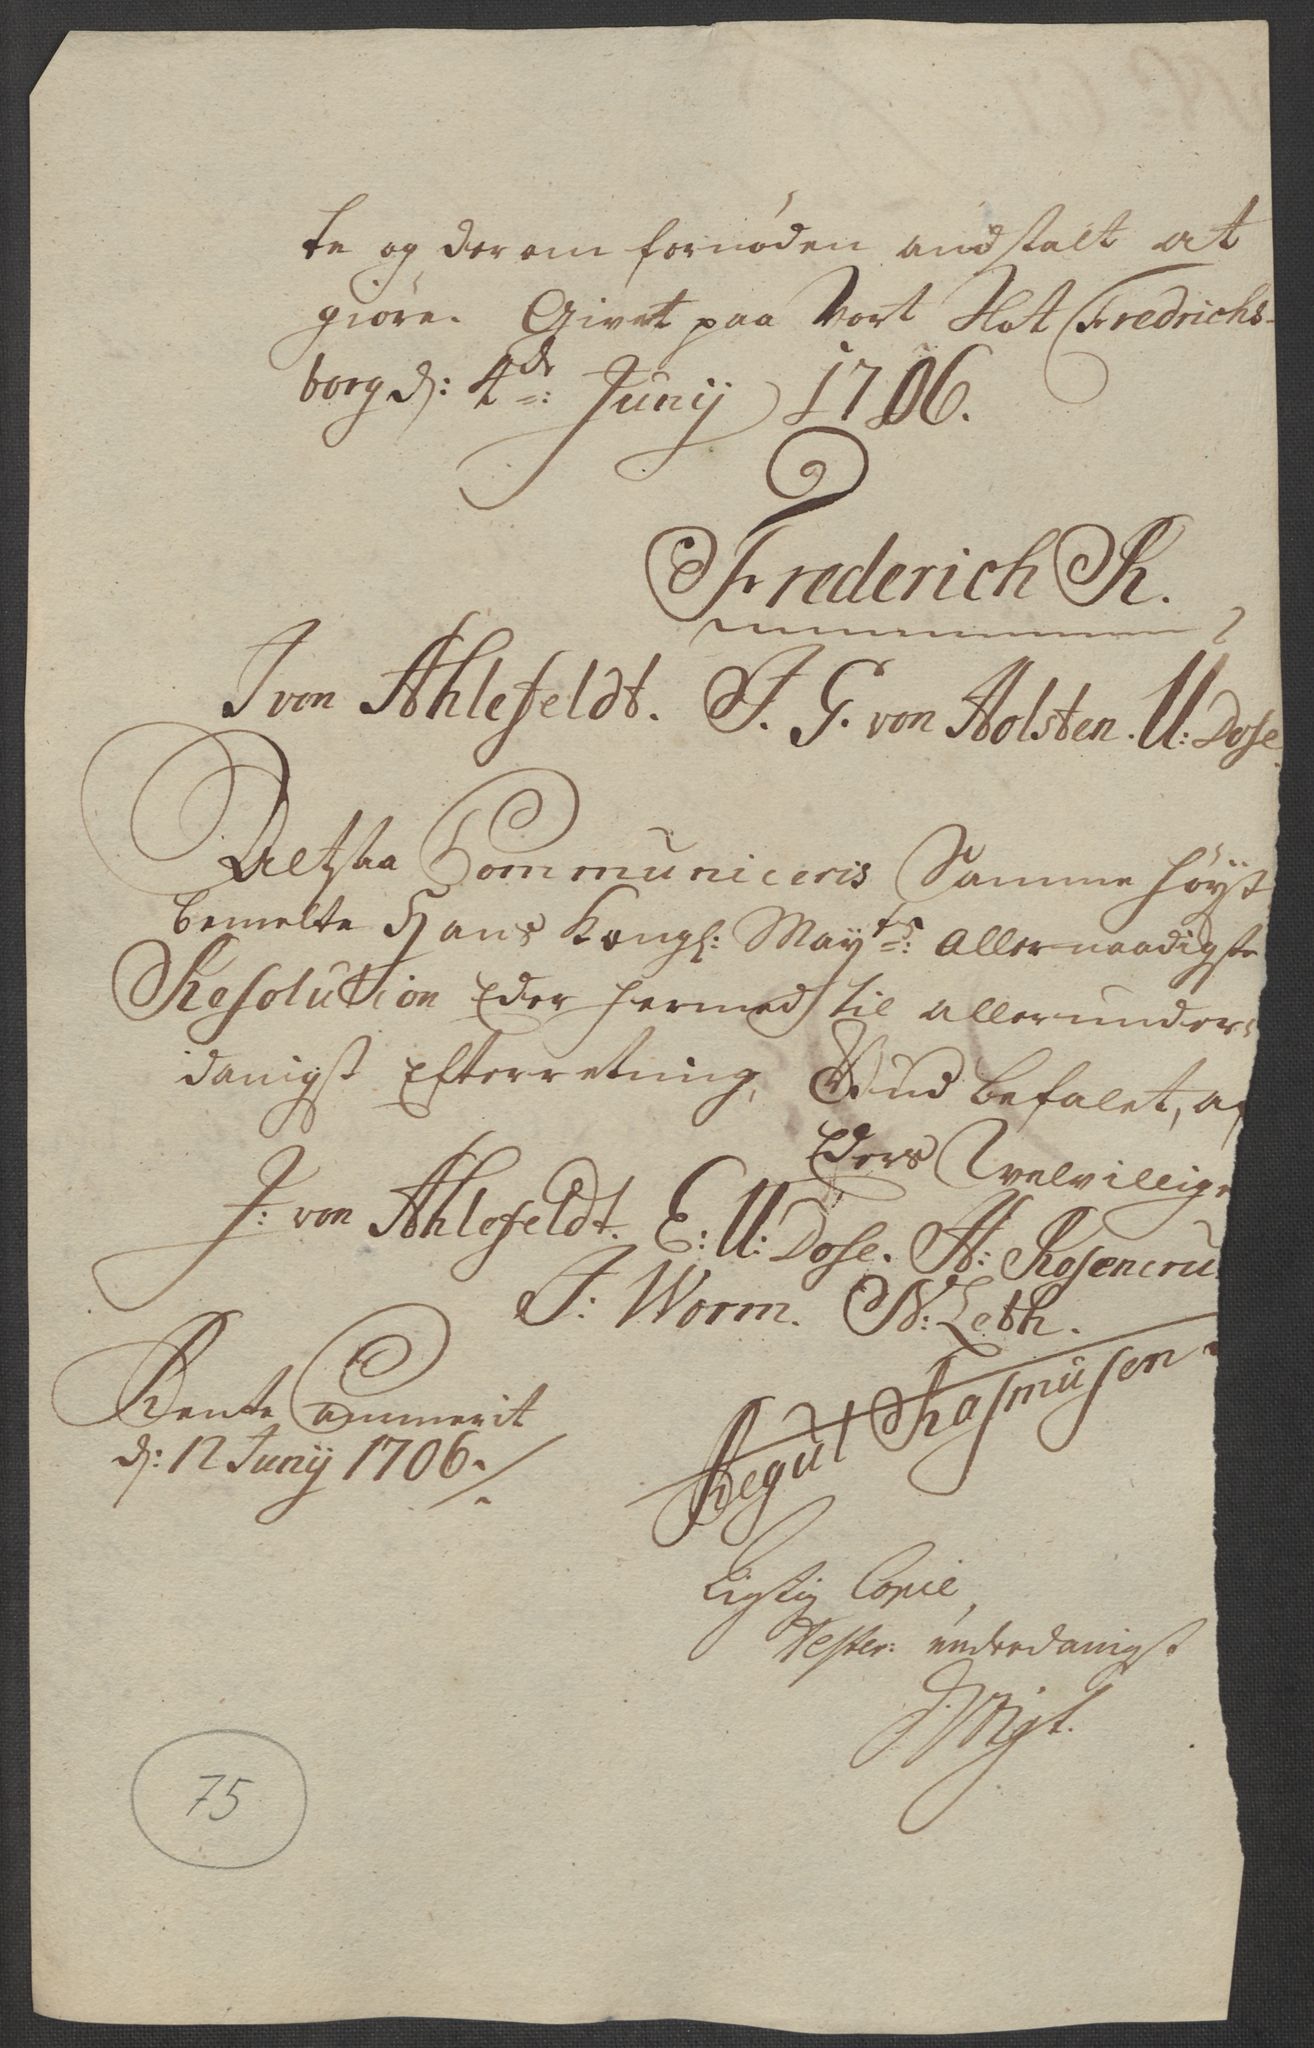 te og derom fornöden andstalt at
giöre. Givet paa Vort Slot Fredrichs-
borg d: 4de: Junij 1706.
Frederich R.
J von Ahlefeldt. J. G. von Holsten. U: Dose.
Altsaa Communiceris Samme höyst
bemelte Hans Kongl: Mayts: Allernaadigste
Resolution Eder hermed til allerunder-
danigst Efterretning, Gud befalet, af
Eders Velvillige
J: von Ahlefeldt. E: U: Dose. H: Rosencru
J: Worm. N: Leth.
Rente Cammerit
d: 12 Junij 1706.
Regul Rasmusen
Rigtig Copie,
Tester: underdanigst
Vogt.
75